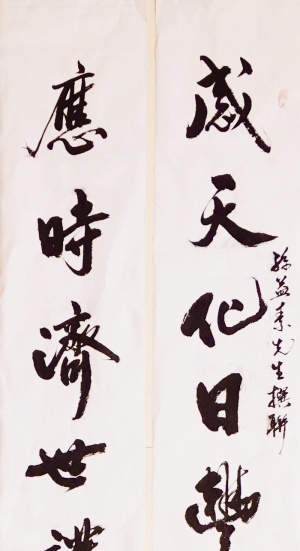 感天化日
孫益先生撰聯
應時濟世